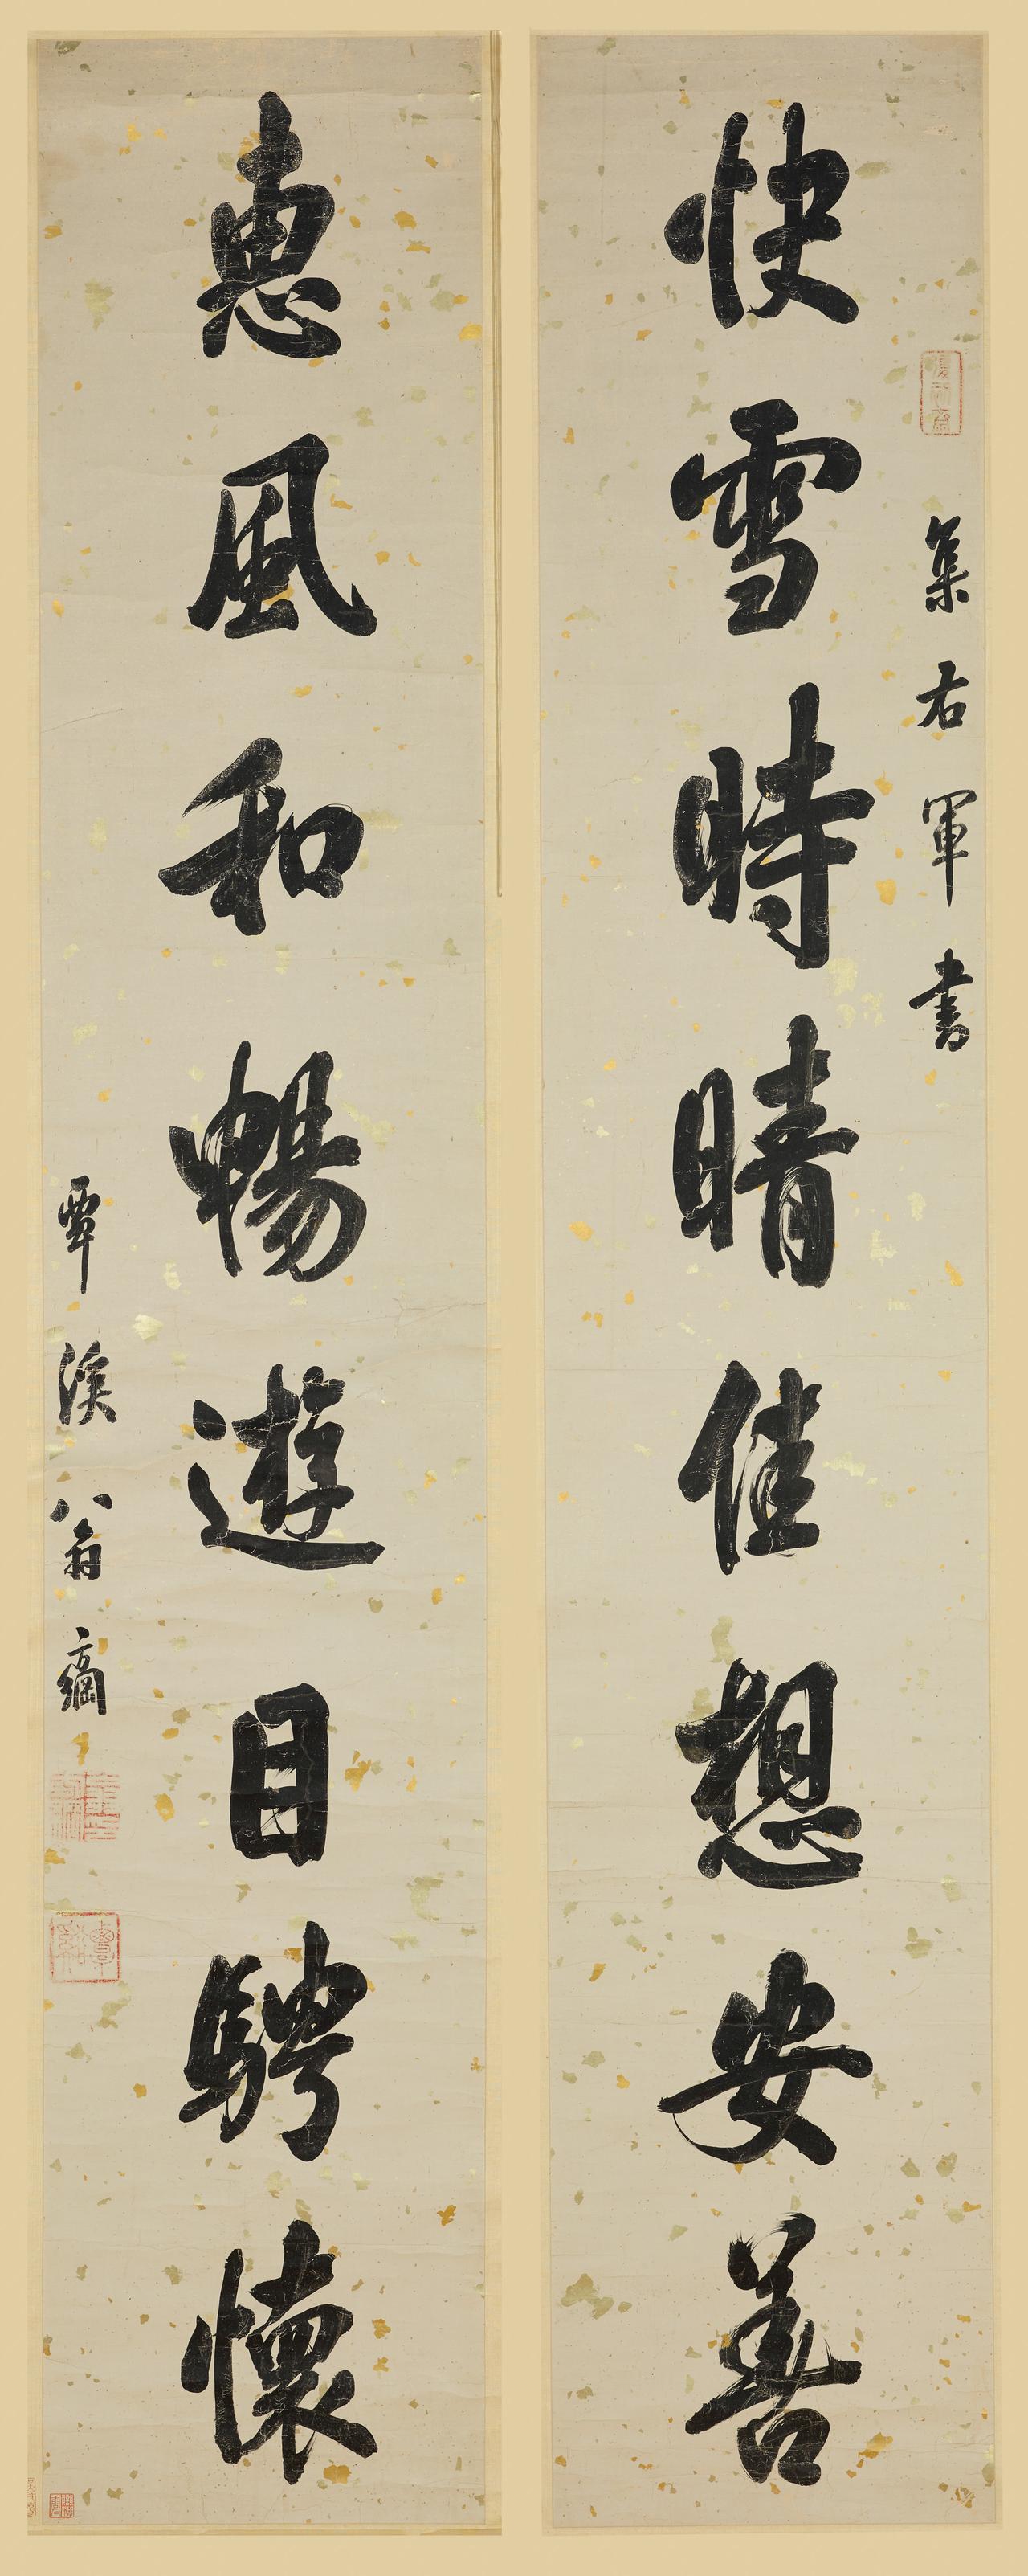 集右軍書
快雪時晴佳想安善
惠風和暢遊目騁懷
覃溪八翁方綱